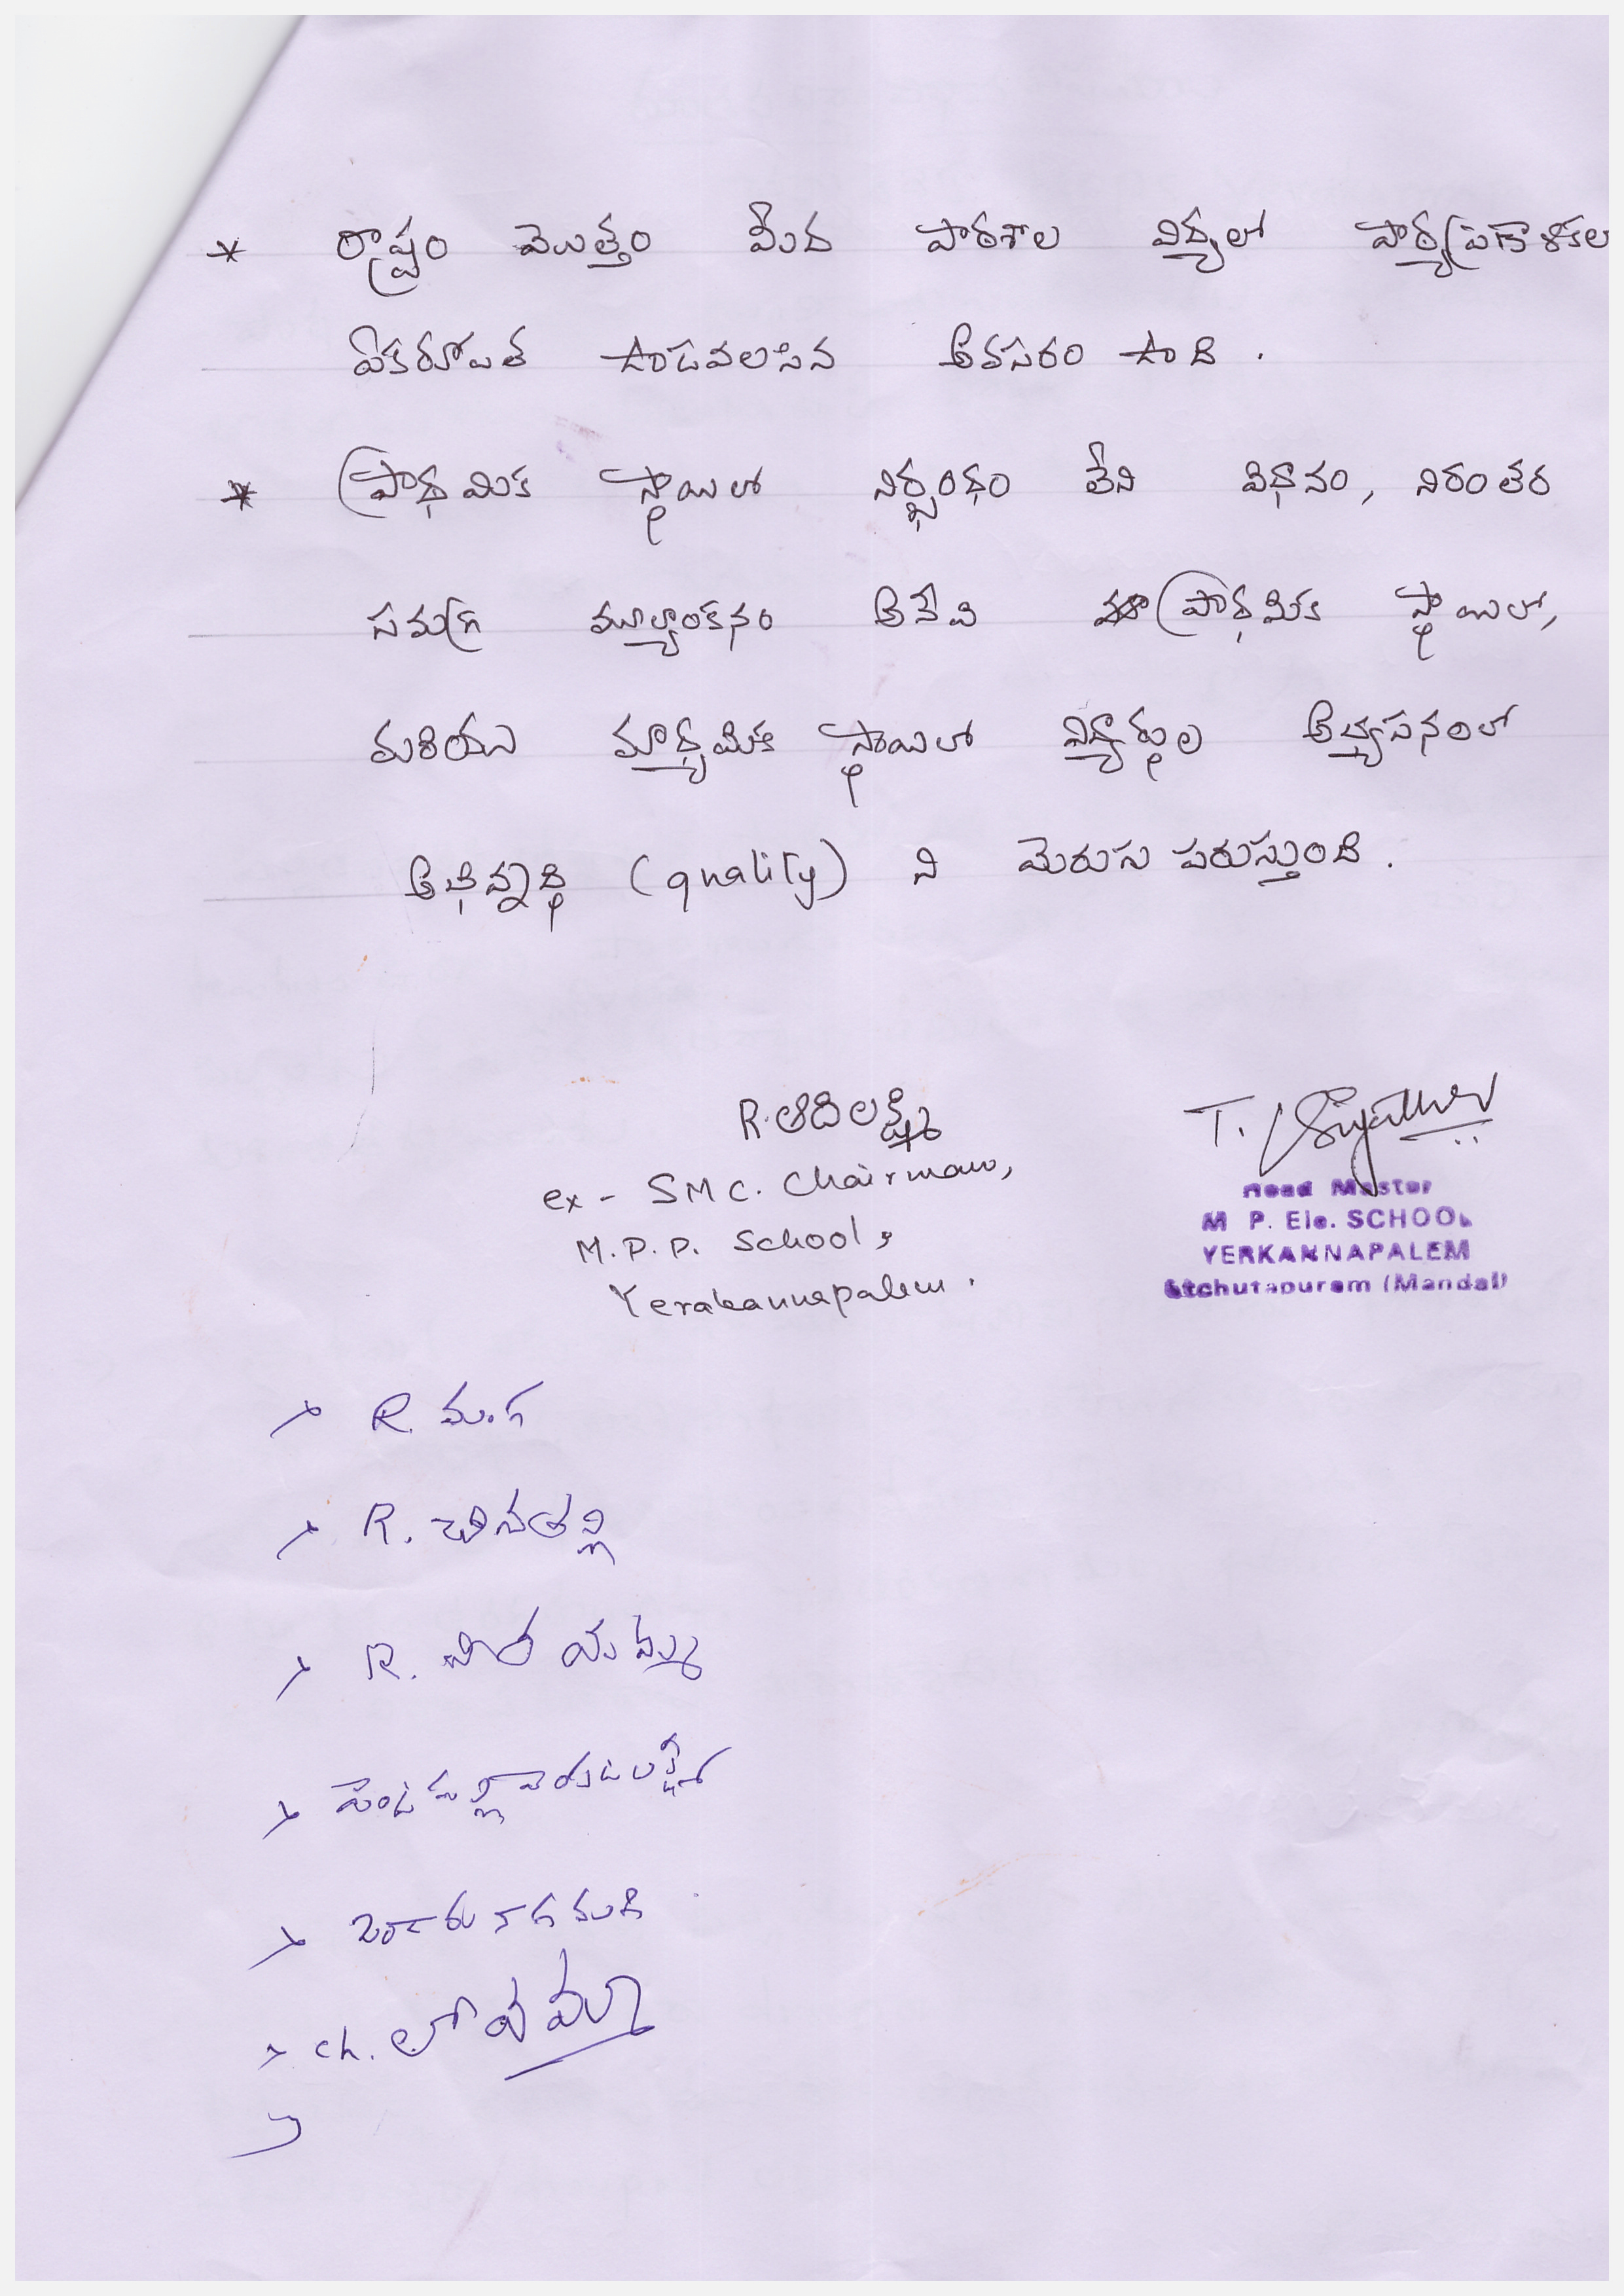 * రాష్ట్రం మొత్తం మీద పాఠశాల విద్యలో పాఠ్యప్రణాళికల
ఏకరూపత ఉండవలసిన అవసరం ఉంది .
* ప్రాథమిక స్థాయిలో నిర్భంధం లేని విధానం, నిరంతర
సమగ్ర మూల్యాంకనం అనేవి ప్రాథమిక స్థాయిలో,
మరియు మాధ్యమిక స్థాయిలో విద్యార్థుల అభ్యసనంలో
అభివృద్ధి (quality) ని మెరుగు పరుస్తుంది .
R. ఆదిలక్ష్మి
ex - SMC. Chairman,
M.P.P. School,
Yerakannapalem .
T.
Head Master
M P. Ele. SCHOOL
YERKANNAPALEM
Atchutapuram (Mandal)
R. మంగ
R. చినతల్లి
R.
ch. లోవమ్మ